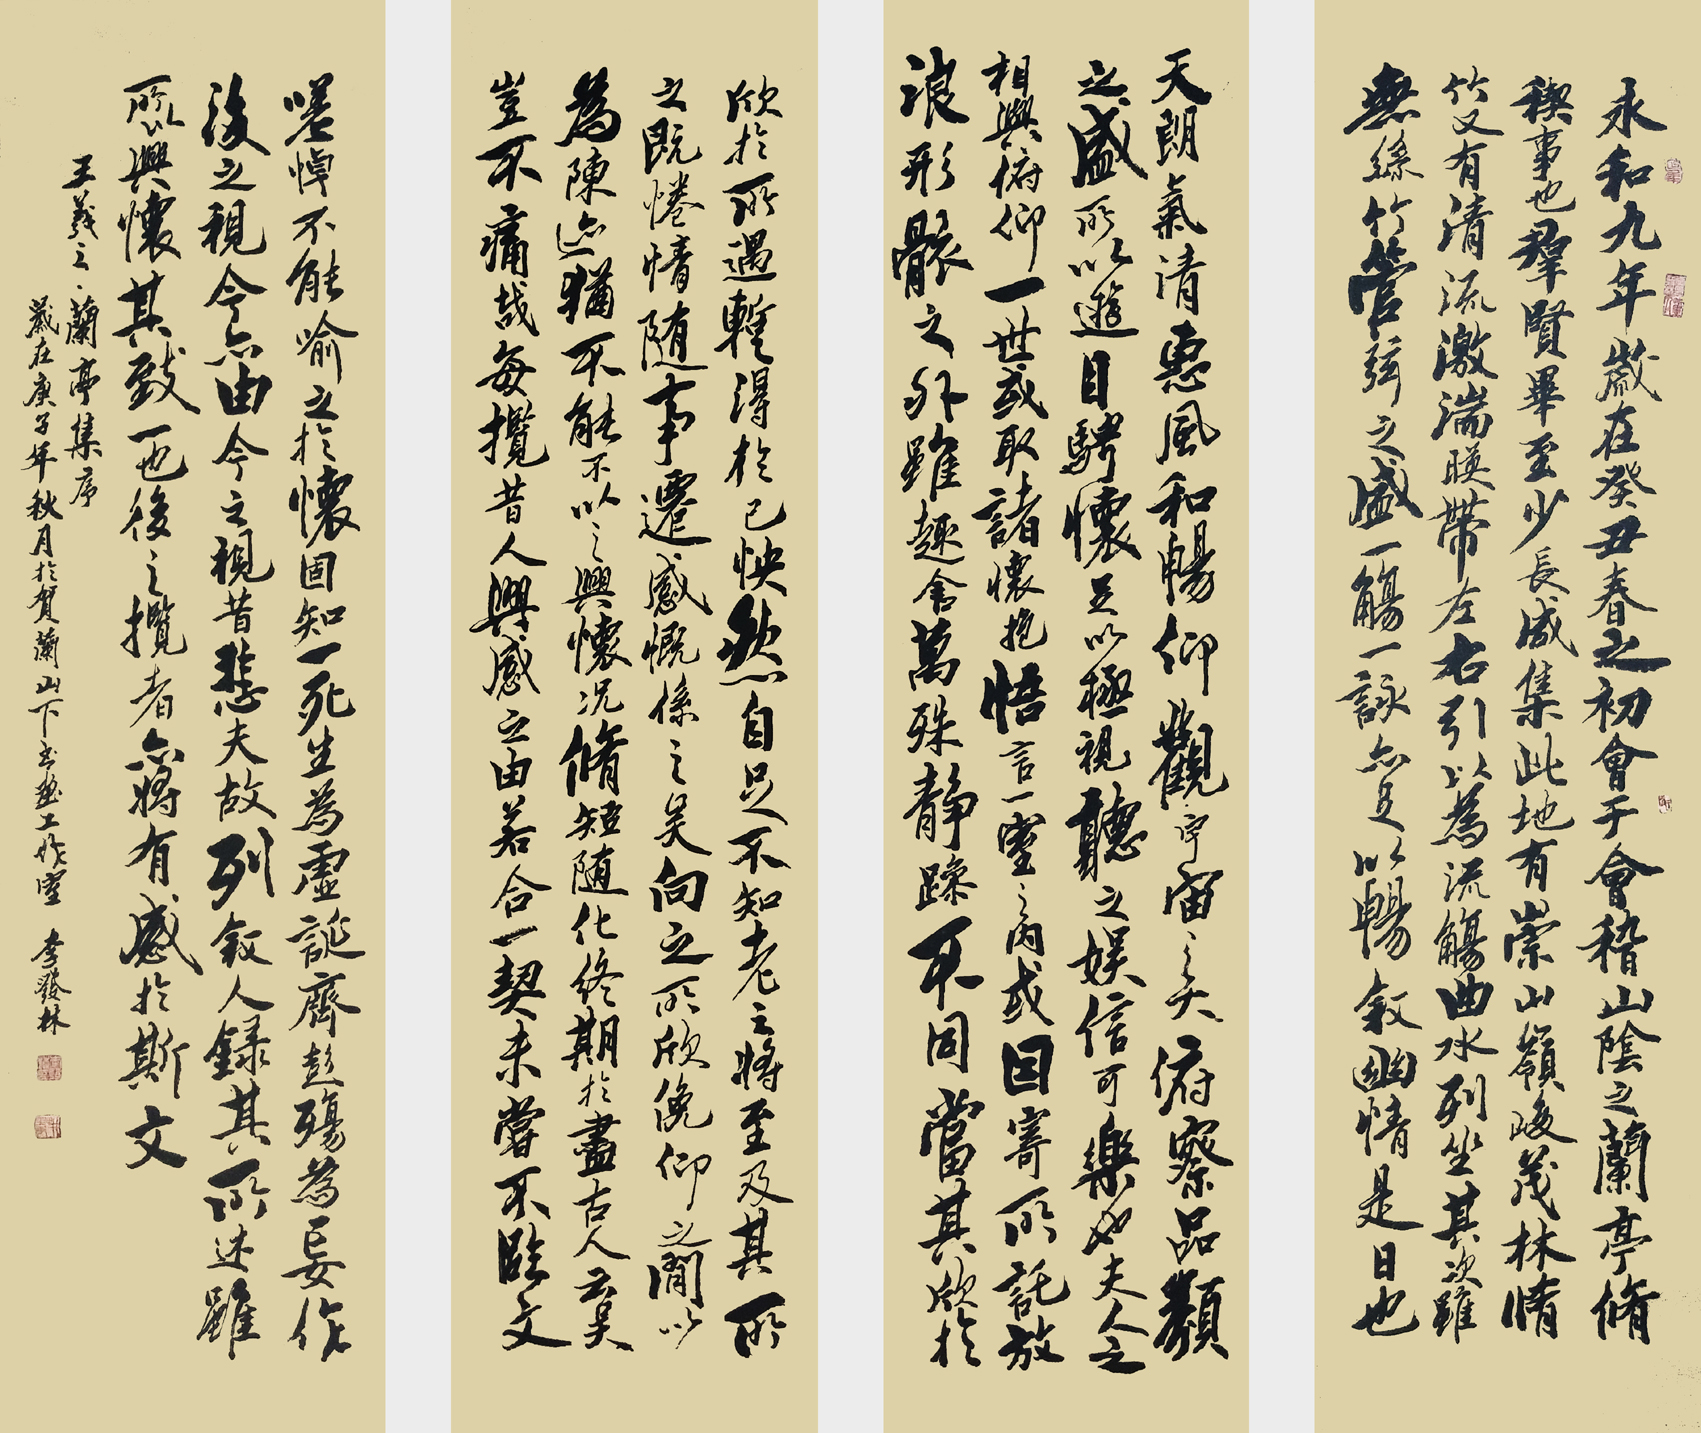 永和九年歲在癸丑春之初會于會稽山陰之蘭亭脩
稧事也群賢畢至少長咸集此地有崇山嶺峻茂林脩
竹又有清流激湍暎帶左右引以為流觴曲水列坐其次雖
無絲竹管弦之盛一觴一詠亦足以暢敘幽情是日也
天朗氣清惠風和暢仰觀宇宙之大俯察品類
之盛所以遊目騁懷足以極視聽之娛信可樂也夫人之
相與俯仰一世或取諸懷抱悟言一室之內或因寄所託放
浪形骸之外雖趣舍萬殊靜躁不同當其欣於
欣於所遇蹔得於己怏然自足不知老之將至及其所
之既惓情隨事遷感慨係之矣向之所欣俛仰之間以
為陳迹猶不能不以之興懷況脩短隨化終期於盡古人云矣
豈不痛哉每攬昔人興感之由若合一契未嘗不臨文
嗟悼不能喻之於懷固知一死生為虛誕齊彭殤為妄作
後之視今亦由今之視昔悲夫故列敘人錄其所述雖
所以興懷其致一也後之攬者亦將有感於斯文
王羲之蘭亭集序
歲在庚子年秋月於賀蘭山下書畫工作室 李發林